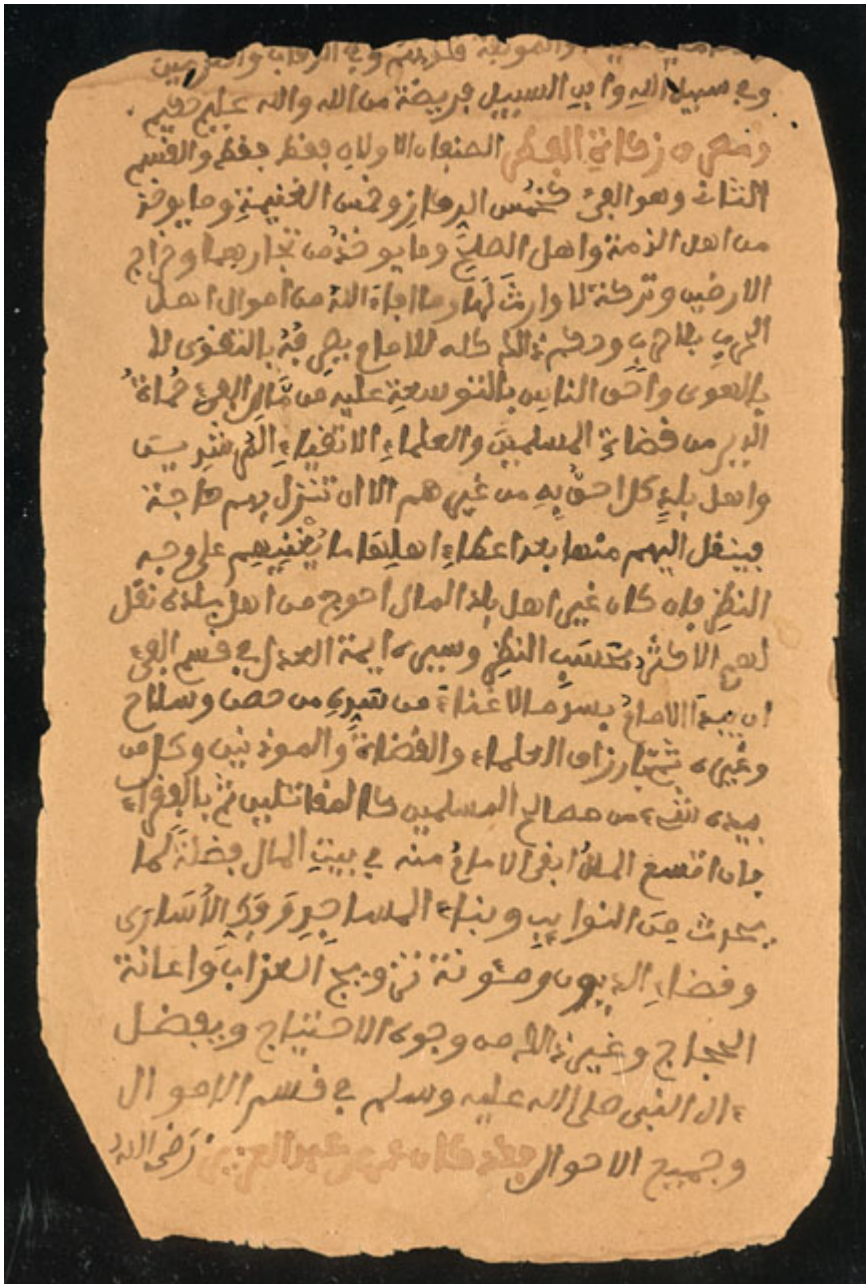 والمولفة قلوبهم وفي الرقاب والغرمين
وفي سبيل الله وابن السبيل فريضة من الله والله عليم حكيم
ومصرف زكاة الفطر الصنفان الاولان فقط فقط والقسم
الثاني وهو الفيء كخمس الركاز وخمس الغنيمة وما يوخذ
من اهل الذمة واهل الصلح وما يوخذ من تجارهما وخراج
الارضين وتركة لا وارث لها وما افاء الله من اموال اهل
الحرب وحكم ذلك كله للامام يصرفه بالتقوى لا
بالهوى واحق الناس بالتوسعة عليه من مال الفيء حماة
الدين من قضاة المسلمين والعلماء الاتقياء
واهل بلد كل احق به من غيرهم الا ان تنزل بهم حاجة
فينقل اليهم منها بعد اعطاء اهلها ما يغنيهم على وجه
النظر فان كان غير اهل بلد المال احوج من اهل بلده نقل
لهم الاكثر بحسب النظر وسيرة ايمة العدل في قسم الفيء
ان يبدا الامام بسد ما لا غناء من حصن وسلاح
وغيره ثم بارزاق العلماء والقضاة والموذنين وكل من
بيده شيء من مصالح المسلمين كالمقاتلين ثم بالفقراء
فان اتسع المال ابقى الامام منه في بيت المال فضلة لما
يحدث من النوايب وبناء المساجد وفك الأسارى
وقضاء الديون ومئونة تزويج العزاب واعانة
الحجاج وغير ذلك من وجوه الاحتياج ويفضل
ءال النبي صلى الله عليه وسلم في قسم الاموال
وجميع الاحوال فقد كان عمر بن عبد العزيز رضي الله